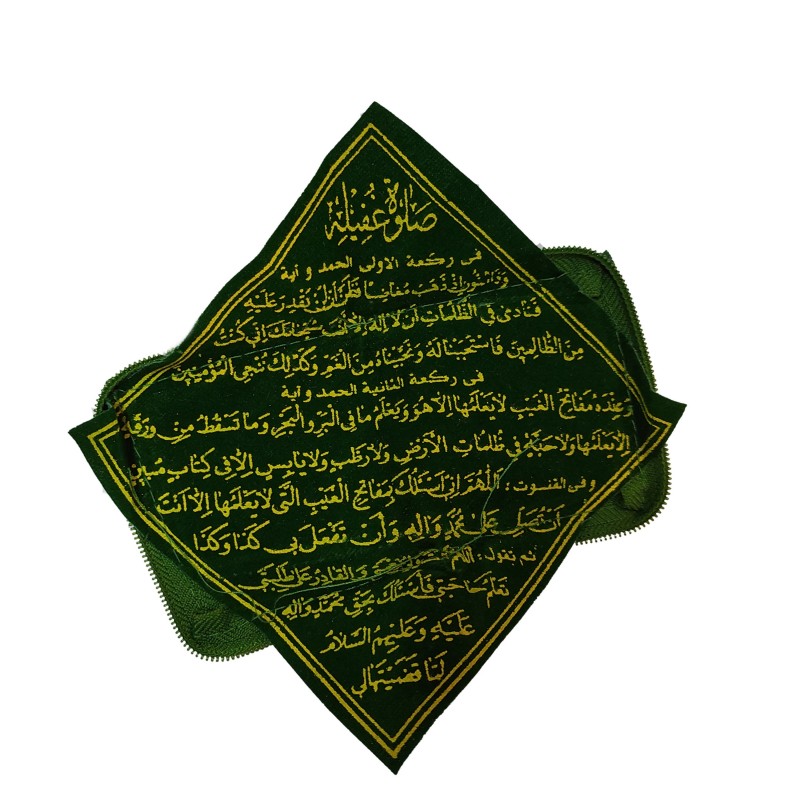 صَلوٰة غُفَيْلِه
في ركعة الاولى الحمد و آية
وَذَا النُّونِ إِذْ ذَهَبَ مُغَاضِبًا فَظَنَّ أَنْ لَنْ نَقْدِرَ عَلَيْهِ
فَنَادَىٰ فِي الظُّلُمَاتِ أَنْ لَا إِلٰهَ إِلَّا أَنْتَ سُبْحَانَكَ إِنِّي كُنْتُ
مِنَ الظَّالِمِينَ فَاسْتَجَبْنَا لَهُ وَنَجَّيْنَاهُ مِنَ الْغَمِّ وَكَذٰلِكَ نُنْجِي الْمُؤْمِنِينَ
في ركعة الثانية الحمد و آية
وَعِنْدَهُ مَفَاتِحُ الْغَيْبِ لَا يَعْلَمُهَا إِلَّا هُوَ وَيَعْلَمُ مَا فِي الْبَرِّ وَالْبَحْرِ وَمَا تَسْقُطُ مِنْ وَرَقَةٍ
إِلَّا يَعْلَمُهَا وَلَا حَبَّةٍ فِي ظُلُمَاتِ الْأَرْضِ وَلَا رَطْبٍ وَلَا يَابِسٍ إِلَّا فِي كِتَابٍ مُبِينٍ
و في القنوت : اَللّٰهُمَّ إِنِّي أَسْئَلُكَ بِمَفَاتِحِ الْغَيْبِ الَّتِي لَا يَعْلَمُهَا إِلَّا أَنْتَ
أَنْ تُصَلِّيَ عَلَىٰ مُحَمَّدٍ وَآلِهِ وَأَنْ تَفْعَلَ بِي كَذَا وَكَذَا
ثم تقول : اَللّٰهُمَّ وَالْقَادِرُ عَلَىٰ طَلِبَتِي
تَعْلَمُ حَاجَتِي فَأَسْئَلُكَ بِحَقِّ مُحَمَّدٍ وَآلِهِ
عَلَيْهِ وَعَلَيْهِمُ السَّلَامُ
لَمَّا قَضَيْتَهَا لِي